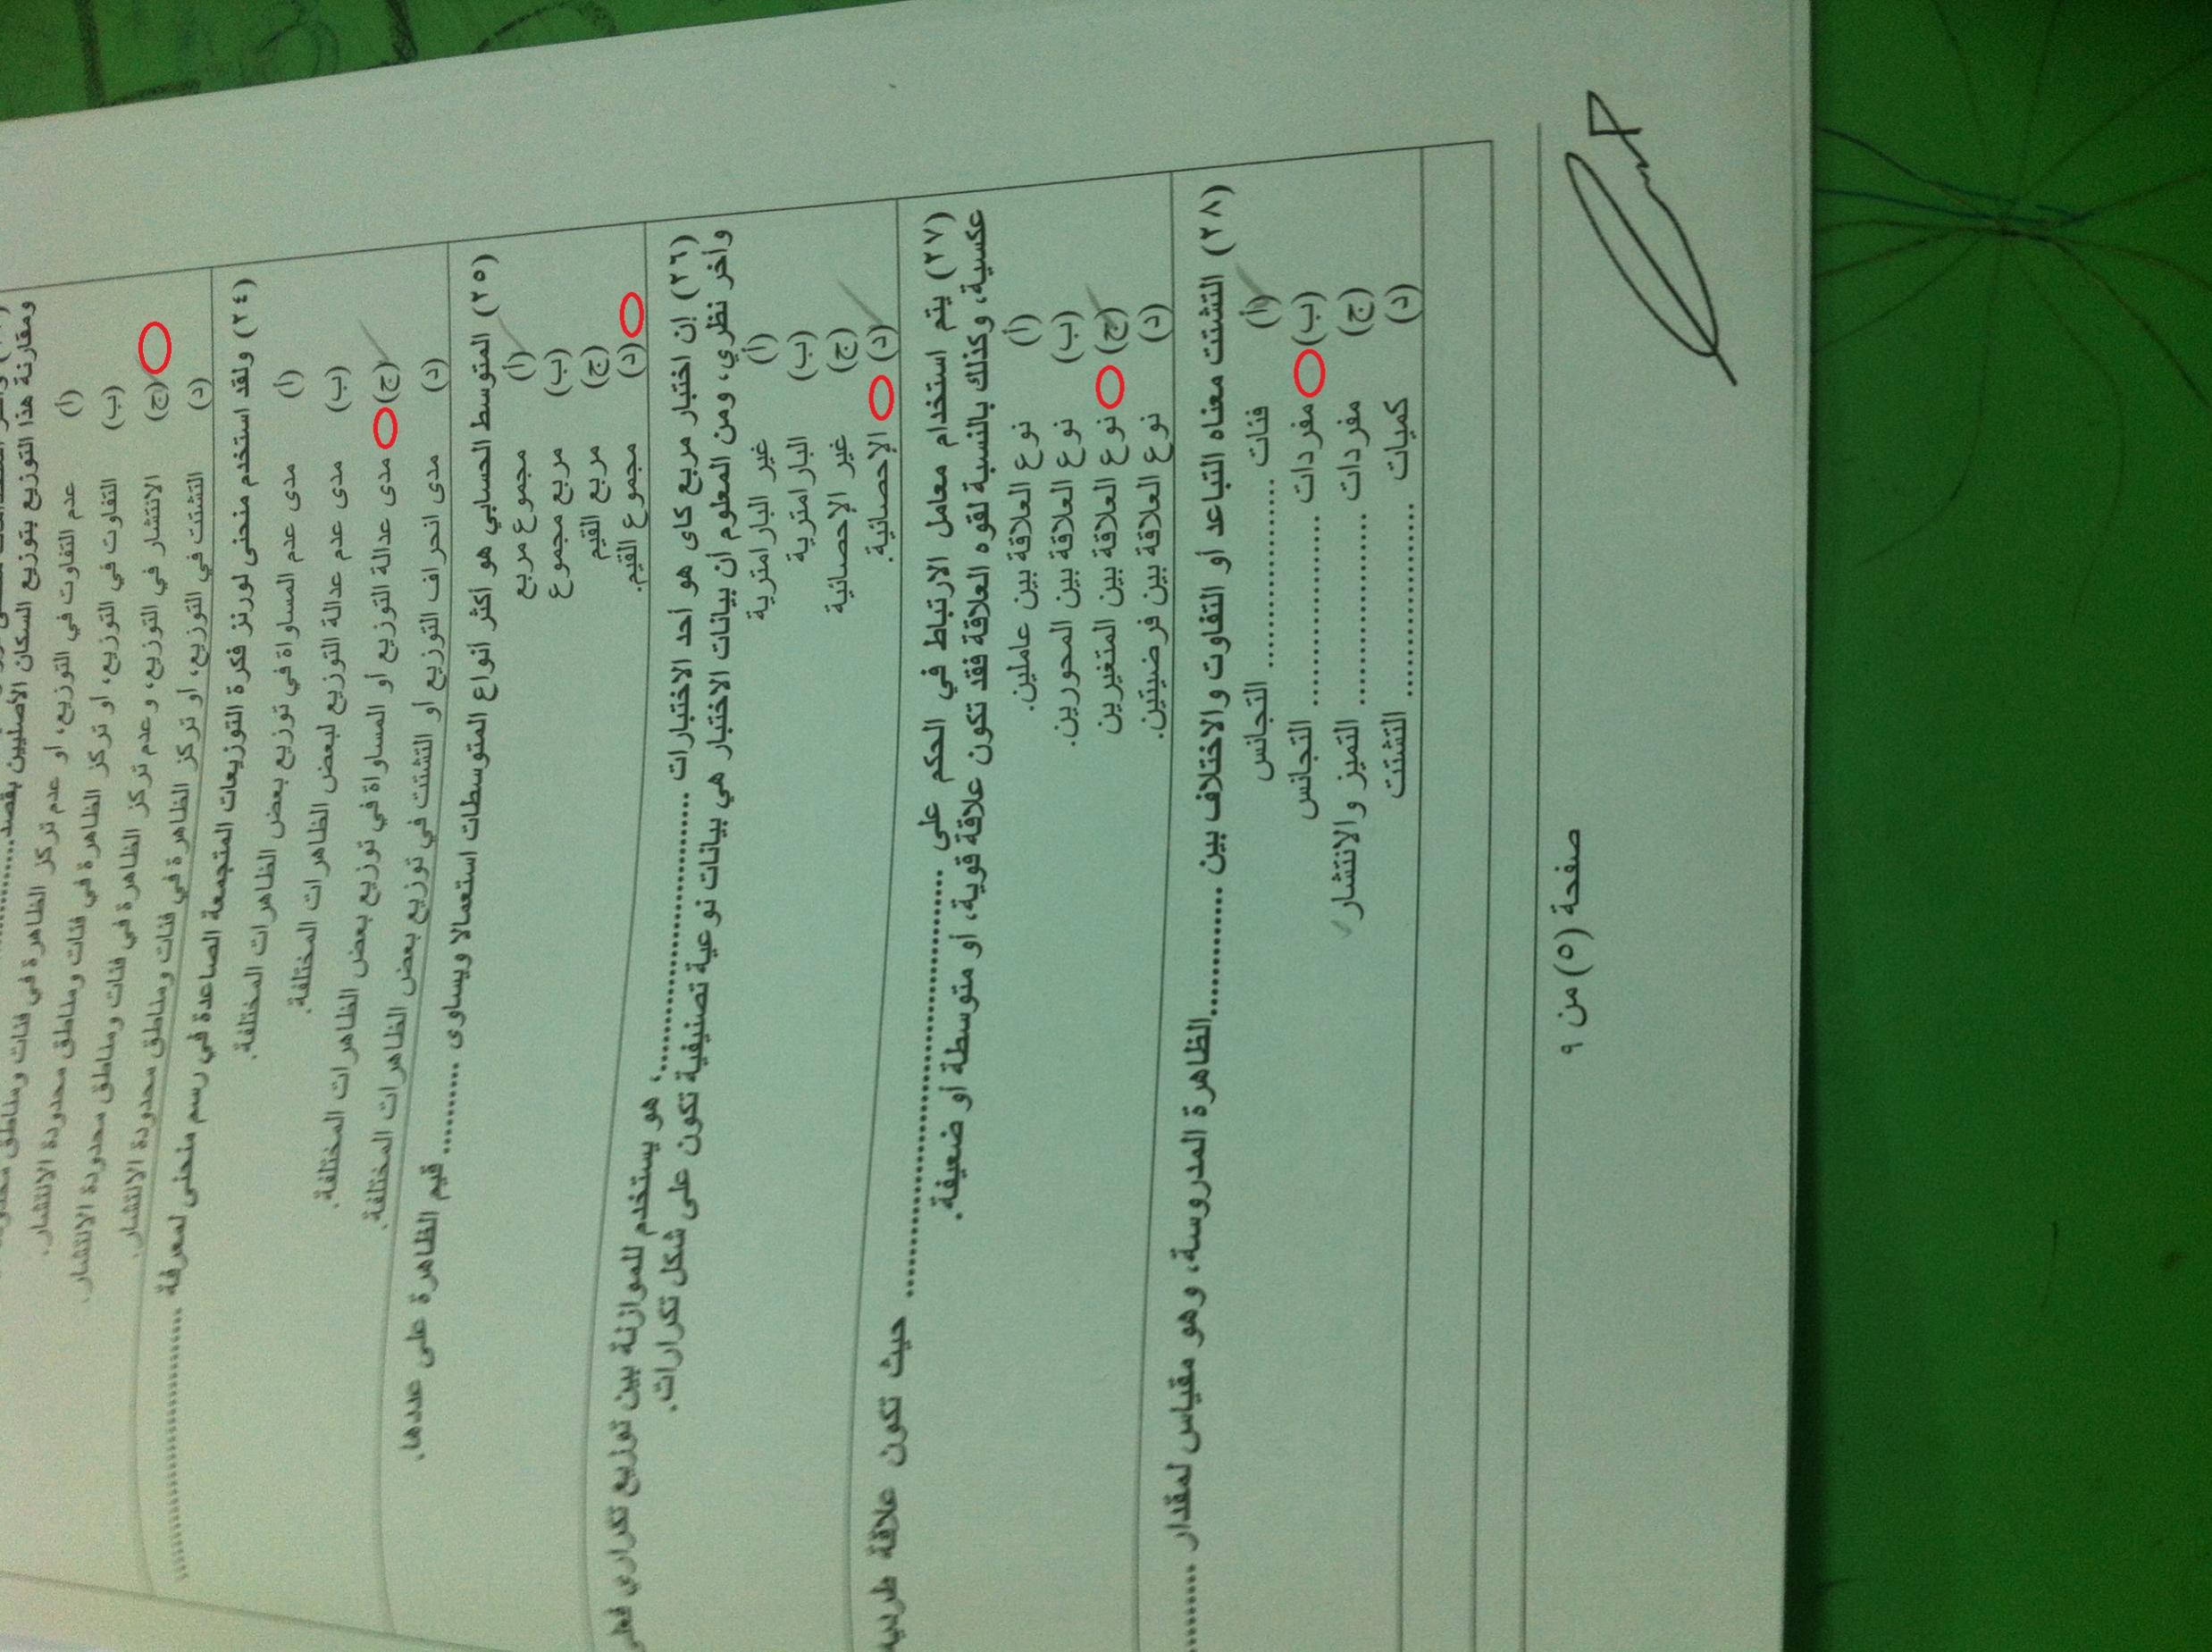 ومقارنة هذا التوزيع بتوزيع السكان الأصليين بقصد
(أ) عدم التفاوت في التوزيع، أو عدم تركز الظاهرة في فئات ومناطق محدودة الانتشار.
(ب) التفاوت في التوزيع، أو تركز الظاهرة في فئات ومناطق محدودة الانتشار.
(ج) الانتشار في التوزيع، وعدم تركز الظاهرة في فئات ومناطق محدودة الانتشار.
(د) التشتت في التوزيع، أو تركز الظاهرة في فئات ومناطق محدودة الانتشار.
(٢٤) ولقد استخدم منحنى لورنز فكرة التوزيعات المتجمعة الصاعدة في رسم منحنى لمعرفة ..........
(أ) مدى عدم المساواة في توزيع بعض الظاهرات المختلفة.
(ب) مدى عدم عدالة التوزيع لبعض الظاهرات المختلفة.
(ج) مدى عدالة التوزيع أو المساواة في توزيع بعض الظاهرات المختلفة.
(د) مدى انحراف التوزيع أو التشتت في توزيع بعض الظاهرات المختلفة.
(٢٥) المتوسط الحسابي هو أكثر أنواع المتوسطات استعمالا ويساوى .......... قيم الظاهرة على عددها.
(أ) مجموع مربع
(ب) مربع مجموع
(ج) مربع القيم
(د) مجموع القيم.
(٢٦) إن اختبار مربع كاى هو أحد الاختبارات ..........، هو يستخدم للموازنة بين توزيع تكراري فعلي
وآخر نظري، ومن المعلوم أن بيانات الاختبار هي بيانات نوعية تصنيفية تكون على شكل تكرارات.
(أ) غير البارامترية
(ب) البارامترية
(ج) غير الإحصائية
(د) الإحصائية.
(٢٧) يتم استخدام معامل الارتباط في الحكم على .......... حيث تكون علاقة طردية
عكسية، وكذلك بالنسبة لقوه العلاقة فقد تكون علاقة قوية، أو متوسطة أو ضعيفة.
(أ) نوع العلاقة بين عاملين.
(ب) نوع العلاقة بين المحورين.
(ج) نوع العلاقة بين المتغيرين
(د) نوع العلاقة بين فرضيتين.
(٢٨) التشتت معناه التباعد أو التفاوت والاختلاف بين ..........الظاهرة المدروسة، وهو مقياس لمقدار ..........
(أ) فئات .......... التجانس
(ب) مفردات .......... التجانس
(ج) مفردات .......... التميز والانتشار
(د) كميات .......... التشتت
صفحة (٥) من ٩